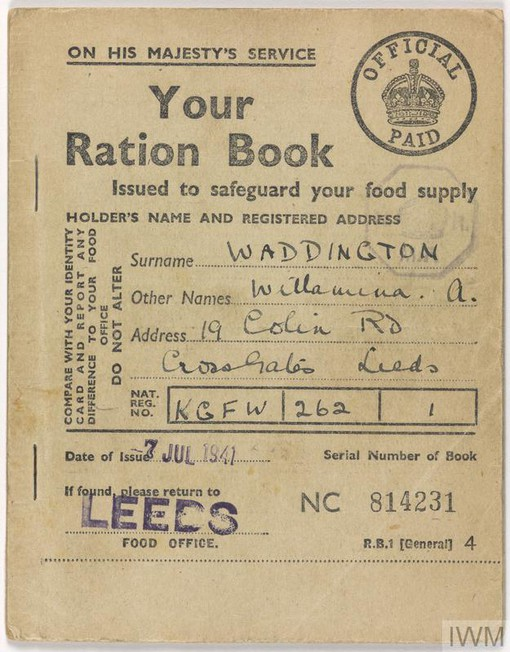 ON HIS MAJESTY'S SERVICE
OFFICIAL
PAID
Your
Ration Book
Issued to safeguard your food supply
HOLDER'S NAME AND REGISTERED ADDRESS
COMPARE WITH YOUR IDENTITY
CARD AND REPORT ANY
DIFFERENCE TO YOUR FOOD
OFFICE
DO NOT ALTER
Surname WADDINGTON
Other Names Willamina. A.
Address 19 Colin RD
CrossGates Leeds
NAT.
REG.
NO.
KGFW 262 1
Date of Issue -7 JUL 1941
Serial Number of Book
If found, please return to
LEEDS
FOOD OFFICE.
NC 814231
R.B.1 [General] 4
IWM